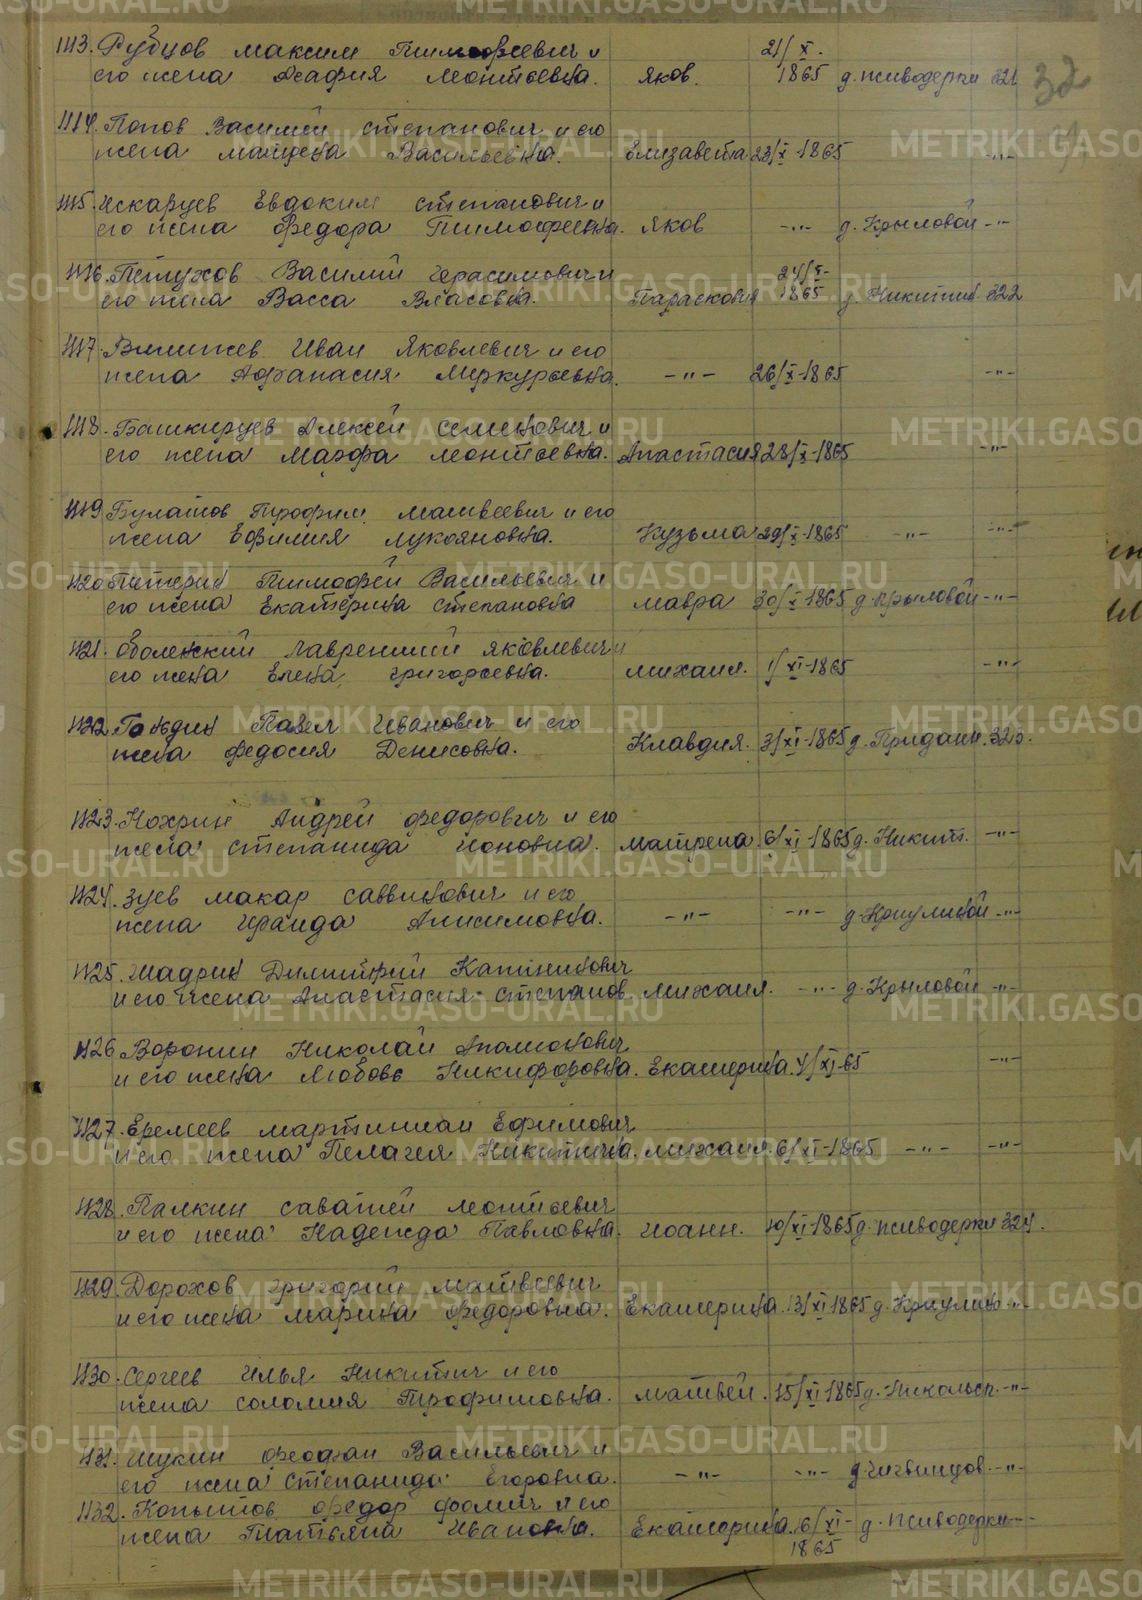 1113. Рубцов Максим Тимофеевич и 21/X.
его жена Агафия Леонтьевна. Яков. 1865 д. Живодерки 321
32
1114. Попов Василий Степанович и его
жена Васильевна. Елизавета 23/X-1865 -"-
1115. Искарцев Евдоким Степанович и
его жена Федора Тимофеевна. Яков -"- д. Крыловой -"-
1116. Петухов Василий Герасимович и 24/X-
его жена Васса Власовна. Парасковия 1865 д. Никитин 322
1117. Иван Яковлевич и его
жена Афанасия Меркурьевна. -"- 26/X-1865 -"-
1118. Башкирцев Алексей Семенович и
его жена Марфа Леонтьевна. Анастасия 28/X-1865 -"-
1119. Булатов Трофим Матвеевич и его
жена Ефимия Лукояновна. Кузьма 29/X-1865 -"- -"-
1120. Тимофей Васильевич и
его жена Екатерина Степановна Мавра 30/X-1865 д. Крыловой -"-
1121. Оболенский Лаврентий Яковлевич и
его жена Елена Григорьевна. Михаил. 1/XI-1865 -"-
1122. Павел Иванович и его
жена Федосия Денисовна. Клавдия. 3/XI-1865 д. 323.
1123. Кохрин Андрей Федорович и его
жена Степанида Ионовна. Матрена 6/XI-1865 д. Никит. -"-
1124. Зуев Макар Саввинович и его
жена Ираида Анисимовна. -"- -"- д. Криулиной -"-
1125. Шадрин Димитрий
и его жена Анастасия Степанов. Михаил. -"- д. Крыловой -"-
1126. Воронин Николай
и его жена Любовь Никифоровна. Екатерина. 4/XI-65 -"-
1127. Еремеев Мартиниан Ефимович
и его жена Пелагея Никитична. Михаил. 6/XI-1865 -"- -"-
1128. Палкин Саватей Леонтьевич
и его жена Надежда Павловна. Иоанн. 10/XI-1865 д. Живодерки 324.
1129. Дорохов Григорий Матвеевич
и его жена Марина Федоровна. Екатерина. 13/XI 1865 д. Криулин -"-
1130. Сергеев Илья Никитич и его
жена Соломия Трофимовна. Матвей. 15/XI-1865 д. Никольск. -"-
1131. Щукин Феофан Васильевич и
его жена Степанида Егоровна. -"- -"- д. Чигвинцов -"-
1132. Копытов Федор Фомич и его
жена Татьяна Ивановна. Екатерина. 16/XI- д. Живодерки -"-
1865
METRIKI.GASO-URAL.RU